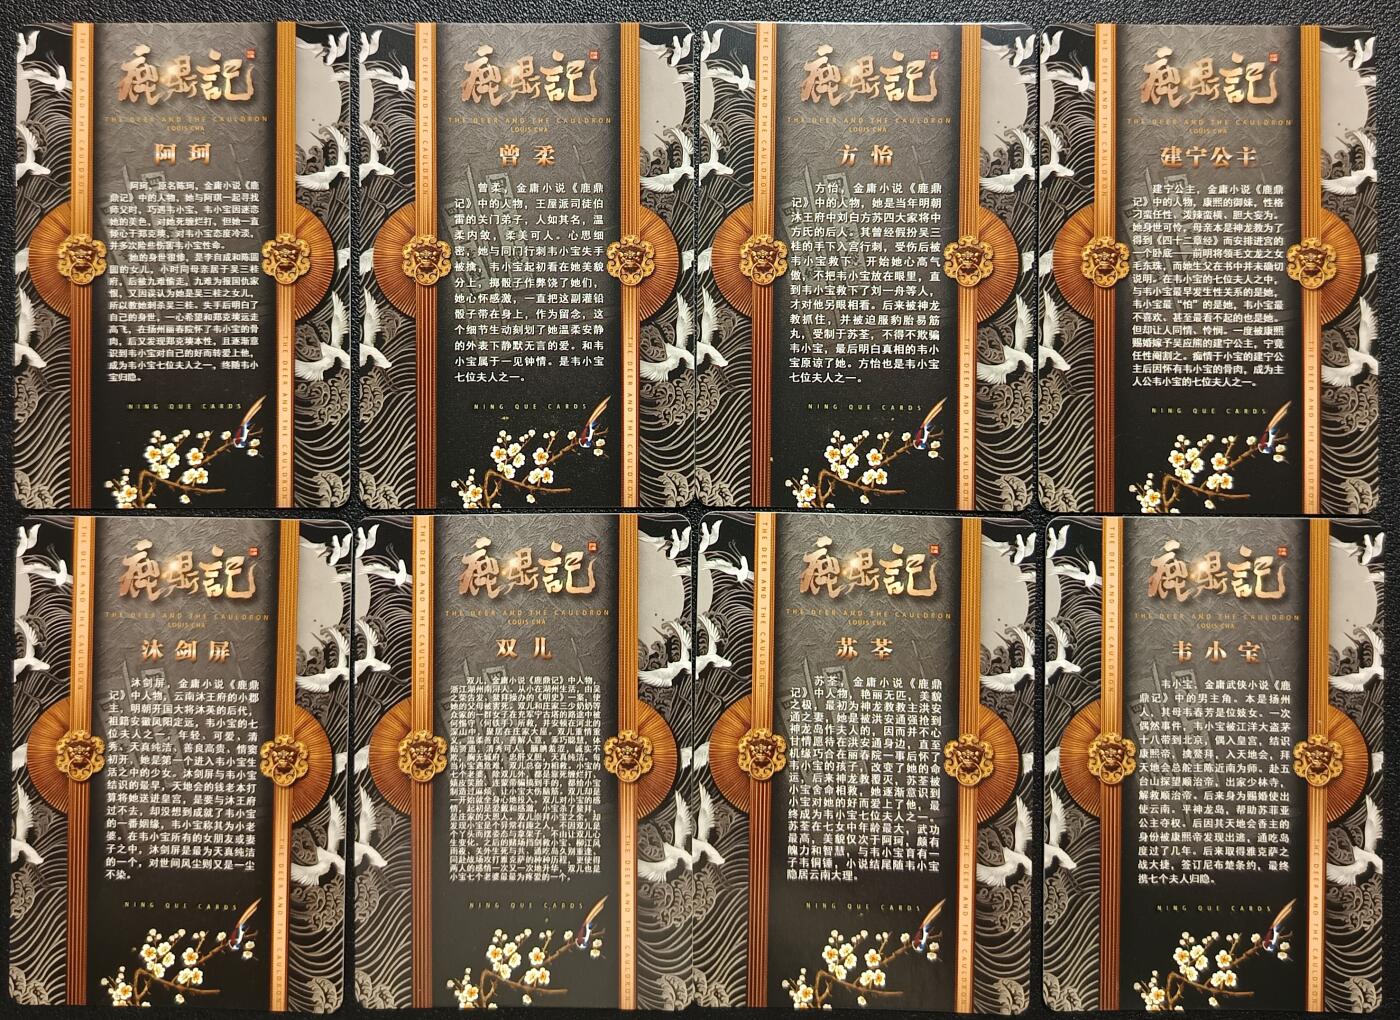 鹿鼎記
THE DEER AND THE CAULDRON
LOUIS CHA
阿珂
阿珂，原名陈珂，金庸小说《鹿
鼎记》中的人物，她与阿琪一起寻找
师父时，巧遇韦小宝，韦小宝因迷恋
她的美色，对她死缠烂打，但她一直
倾心于郑克塽，对韦小宝态度冷淡，
并多次险些伤害韦小宝性命。
她的身世很惨，是李自成和陈圆
圆的女儿，小时同母亲居于吴三桂
府，后被九难偷走，九难为报国仇家
恨，又因误认为她是吴三桂之女儿，
所以教她刺杀吴三桂。失手后明白了
自己的身世，一心希望和郑克塽远走
高飞，在扬州丽春院怀了韦小宝的骨
肉，后又发现郑克塽本性，且逐渐意
识到韦小宝对自己的好而转爱上他，
成为韦小宝七位夫人之一，终随韦小
宝归隐。
NING QUE CARDS
THE DEER AND THE CAULDRON
鹿鼎記
THE DEER AND THE CAULDRON
LOUIS CHA
曾柔
曾柔，金庸小说《鹿鼎
记》中的人物，王屋派司徒伯
雷的关门弟子，人如其名，温
柔内敛，柔美可人。心思细
密，她与同门行刺韦小宝失手
被擒，韦小宝起初看在她美貌
分上，掷骰子作弊饶了她们，
她心怀感激，一直把这副灌铅
骰子带在身上，作为留念，这
个细节生动刻划了她温柔安静
的外表下静默无言的爱。和韦
小宝属于一见钟情。是韦小宝
七位夫人之一。
NING QUE CARDS
THE DEER AND THE CAULDRON
鹿鼎記
THE DEER AND THE CAULDRON
LOUIS CHA
方怡
方怡，金庸小说《鹿鼎
记》中的人物，她是当年明朝
沐王府中刘白方苏四大家将中
方氏的后人。其曾经假扮吴三
桂的手下入宫行刺，受伤后被
韦小宝救下，开始她心高气
傲，不把韦小宝放在眼里，直
到韦小宝救下了刘一舟等人，
才对他另眼相看。后来被神龙
教抓住，并被迫服豹胎易筋
丸，受制于苏荃，不得不欺骗
韦小宝，最后明白真相的韦小
宝原谅了她。方怡也是韦小宝
七位夫人之一。
NING QUE CARDS
THE DEER AND THE CAULDRON
鹿鼎記
THE DEER AND THE CAULDRON
LOUIS CHA
建宁公主
建宁公主，金庸小说《鹿鼎
记》中的人物，康熙的御妹，性格
刁蛮任性、泼辣蛮横、胆大妄为。
她身世可怜，母亲本是神龙教为了
得到《四十二章经》而安排进宫的
一个卧底——前明将领毛文龙之女
毛东珠，而她生父在书中并未确切
说明。在韦小宝的七位夫人之中，
与韦小宝最早发生性关系的是她，
韦小宝最“怕”的是她，韦小宝最
不喜欢、甚至最看不起的也是她。
但却让人同情、怜悯。一度被康熙
赐婚嫁予吴应熊的建宁公主，宁竟
任性阉割之。痴情于小宝的建宁公
主后因怀有韦小宝的骨肉，成为主
人公韦小宝的七位夫人之一。
NING QUE CARDS
THE DEER AND THE CAULDRON
鹿鼎記
THE DEER AND THE CAULDRON
LOUIS CHA
沐剑屏
沐剑屏，金庸小说《鹿鼎
记》中人物，云南沐王府的小郡
主，明朝开国大将沐英的后代，
祖籍安徽凤阳定远，韦小宝的七
位夫人之一。年轻、可爱、清
秀、天真纯洁、善良高贵、情窦
初开，她是第一个进入韦小宝生
活之中的少女。沐剑屏与韦小宝
结识的最早，天地会的钱老本打
算将她送进皇宫，是要与沐王府
过不去，却没想到成就了韦小宝
的一番姻缘，韦小宝称其为小老
婆。在韦小宝所有的女朋友或妻
子之中，沐剑屏是最为天真纯洁
的一个，对世间风尘则又是一尘
不染。
NING QUE CARDS
THE DEER AND THE CAULDRON
鹿鼎記
THE DEER AND THE CAULDRON
LOUIS CHA
双儿
双儿，金庸小说《鹿鼎记》中人物，
浙江湖州南浔人。从小在湖州生活，由吴
之荣告发、鳌拜操办的《明史》一案，使
她的父母被害死。双儿和庄家三少奶奶等
众家的一群女子在充军宁古塔的路途中被
何惕守（何铁手）所救，并安顿在河北的
深山中，聚居在庄家大屋，双儿重情重
义，温柔善良，善解人意，乖巧聪慧，体
贴贤惠，清秀可人，腼腆羞涩，诚实不
欺，胸无城府，忠肝义胆，天真纯洁。每
当小宝遇危难，双儿总奋力相救，小宝的
七个老婆，除双儿外，都是靠死缠烂打，
NING QUE CARDS
THE DEER AND THE CAULDRON
鹿鼎記
THE DEER AND THE CAULDRON
LOUIS CHA
苏荃
苏荃，金庸小说《鹿鼎
记》中人物，艳丽无匹，美貌
之极，最初为神龙教教主洪安
通之妻，她是被洪安通强抢到
神龙岛作夫人的，因而并不心
甘情愿待在洪安通身边，直至
机缘巧合在丽春院一事后怀了
韦小宝的孩子，改变了她的命
运，后来神龙教覆灭，苏荃被
小宝舍命相救，她逐渐意识到
小宝对她的好而爱上了他，最
终成为韦小宝七位夫人之一。
苏荃在七女中年龄最大，武功
最高，美貌仅次于阿珂，颇有
魄力和智慧，与韦小宝育有一
子韦铜锤，小说结尾随韦小宝
隐居云南大理。
NING QUE CARDS
THE DEER AND THE CAULDRON
鹿鼎記
THE DEER AND THE CAULDRON
LOUIS CHA
韦小宝
韦小宝，金庸武侠小说《鹿
鼎记》中的男主角。本是扬州
人，其母韦春芳是位妓女。一次
偶然事件，韦小宝被江洋大盗茅
十八带到北京，偶入皇宫，结识
康熙帝，擒鳌拜，入天地会，拜
天地会总舵主陈近南为师。赴五
台山探望顺治帝。出家少林寺，
解救顺治帝。后来身为赐婚使出
使云南，平神龙岛，帮助苏菲亚
公主夺权。后因其天地会香主的
身份被康熙帝发现出逃，通吃岛
度过了几年。后来取得雅克萨之
战大捷，签订尼布楚条约，最终
携七个夫人归隐。
NING QUE CARDS
THE DEER AND THE CAULDRON